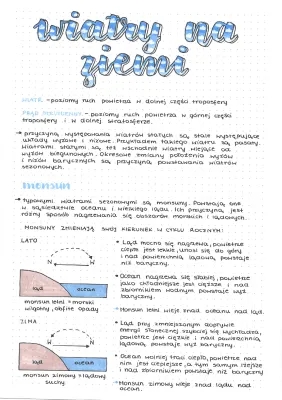 wiatry na
ziemi
WIATR - poziomy ruch powietrza w dolnej części troposfery
PRĄD STRUMIENIOWY - poziomy ruch powietrza w górnej części
troposfery i w dolnej stratosferze.
→ przyczyną występowania wiatrów stałych są stale występujące
układy wyżowe i niżowe. Przykładem takiego wiatru są pasaty.
Wiatrami stałymi są też wschodnie wiatry wiejące od
wyżów biegunowych. Okresowe zmiany położenia wyżów
i niżów barycznych są przyczyną powstawania wiatrów
sezonowych.
monsun
→ typowymi wiatrami sezonowymi są monsuny. Powstają one
w sąsiedztwie oceanu i wielkiego lądu. Ich przyczyną jest
różny sposób nagrzewania się obszarów morskich i lądowych.
MONSUNY ZMIENIAJĄ SWÓJ KIERUNEK W CYKLU ROCZNYM!
LATO
N W
ląd ocean
monsun letni = morski
wilgotny, obfite opady
• Ląd mocno się nagrzewa, powietrze
ciepłe jest lekkie, unosi się do góry
i nad powierzchnią lądową powstaje
niż baryczny.
• Ocean nagrzewa się słabiej, powietrze
jako chłodniejsze jest cięższe i nad
zbiornikiem wodnym powstaje wyż
baryczny.
• Monsun letni wieje znad oceanu nad ląd.
ZIMA
W N
ląd ocean
monsun zimowy = lądowy
suchy
• Ląd przy zmniejszonym dopływie
energii słonecznej szybciej się wychładza,
powietrze jest cięższe i nad powierzchnią
lądową powstaje wyż baryczny.
• Ocean wolniej traci ciepło, powietrze nad
nim jest cieplejsze, a tym samym rzejsze
i nad zbiornikiem powstaje niż baryczny
• Monsun zimowy wieje znad lądu nad
ocean.